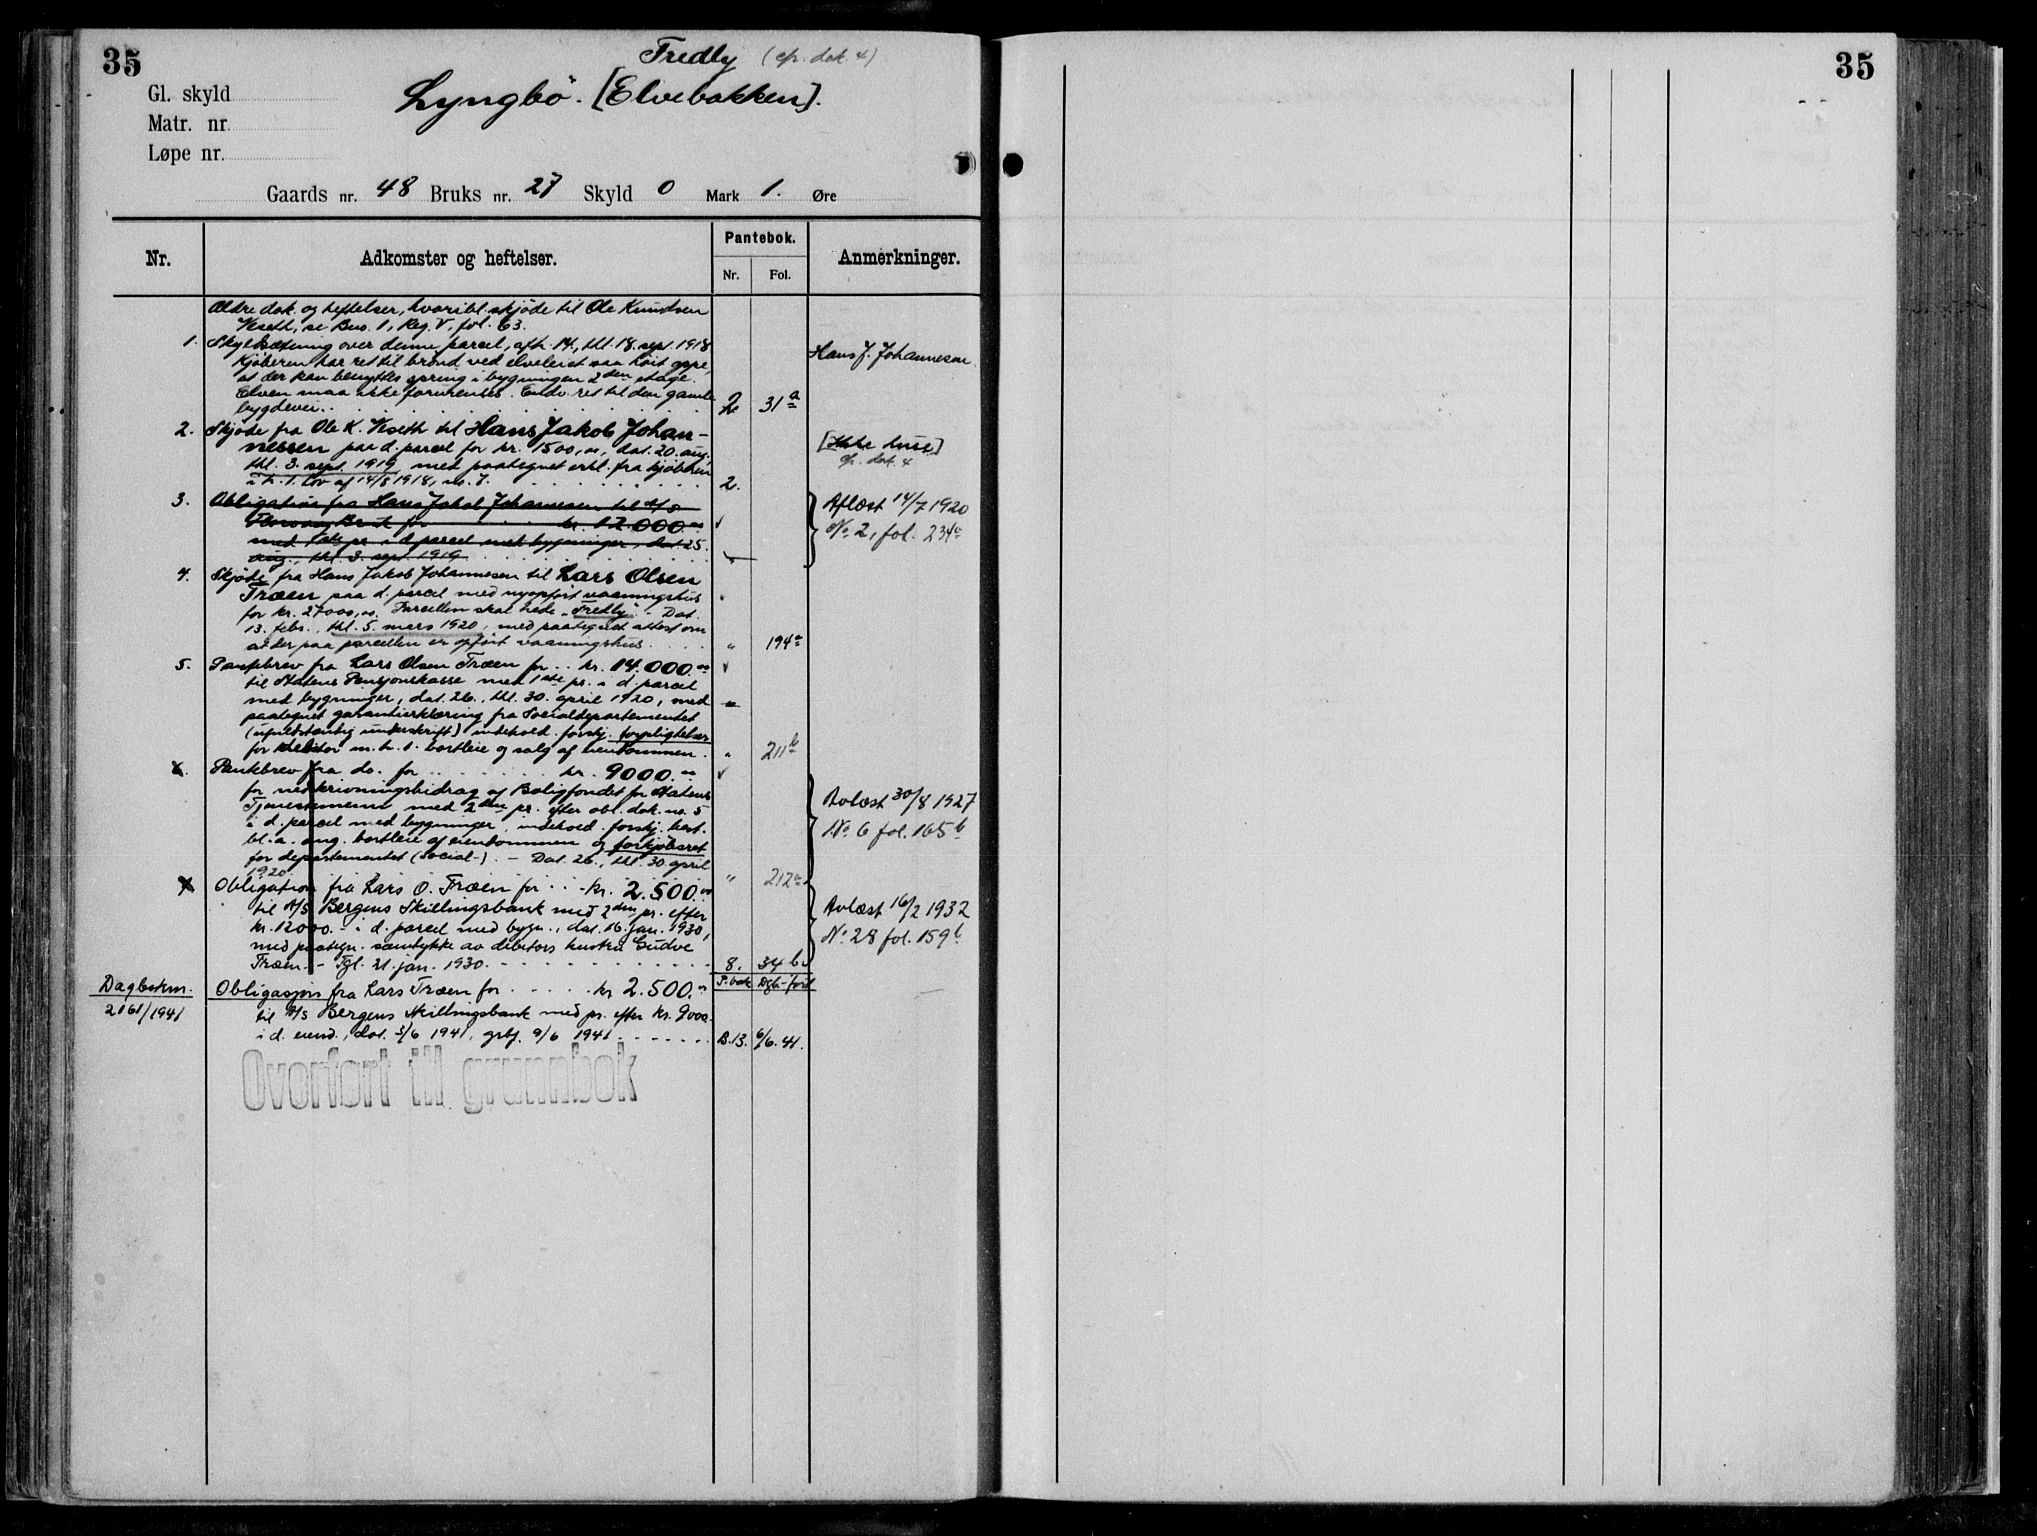 35
Fredly (cfr. dok. 4)
Gl. skyld
Lyngbö. [Elvebakken].
Matr. nr.
Løpe nr.
Gaards nr. 48 Bruks nr. 27 Skyld 0 Mark 1. Øre
Nr.
Adkomster og heftelser.
Pantebok.
Nr. Fol.
Anmerkninger.
Ældre dok. og heftelser, hvoribl. skjøde til Ole Knudsen
Veseth, se Bus. 1, Reg. V, fol. 63.
1. Skyldsætning over denne parcel, afh. 14., thl. 18. sept. 1918
Kjøberen har ret til brønd ved elveleiet saa høit oppe,
at der kan benyttes spring i bygningen 2den etage.
Elven maa ikke forurenses. Endv. ret til den gamle
bygdevei. 2 31a
Hans J. Johannesen
2. Skjøde fra Ole K. Veseth til Hans Jakob Johan-
nessen paa d. parcel for kr. 1500,00, dat. 20. aug.
thl. 3. sept. 1919, med paategnet erkl. fra kjøberen
i h. t. lov af 14/8 1918, no. 7. 2.
[Ikke huse]
cfr. dok. 4
3. Obligation fra Hans Jakob Johannesen til A/S
for kr. 12000.00
med 1ste pr. i d. parcel med bygninger, dat. 25.
aug., thl. 3. sept. 1919
Aflæst 14/7 1920
No. 2, fol. 234a
4. Skjøde fra Hans Jakob Johannesen til Lars Olsen
Træen paa d. parcel med nyopført vaaningshus
for kr. 27000,00. Parcellen skal hede „Fredly". - Dat.
13. febr., thl. 5. mars 1920, med paategnet attest om
at der paa parcellen er opført vaaningshus. " 194a
5. Pantebrev fra Lars Olsen Træen for kr. 14.000.00
til Statens Pensjonskasse med 1ste pr. i d. parcel
med bygninger, dat. 26., thl. 30. april 1920, med
paategnet garantierklæring fra Socialdepartementet
underskrift) indehold. forskj. forpligtelser
for debitor m. h. t. bortleie og salg af eiendommen. " 211b
Pantebrev fra do. for kr. 9000.00
for nedskrivningsbidrag af Boligfondet for Statens
Tjenestemenn med 2den pr. efter obl. dok. no. 5
i d. parcel med bygninger, indehold. forskj. best.
bl. a. ang. bortleie af eiendommen og forkjøbsret
for departementet (Social-). - Dat. 26., thl. 30. april
1920. " 212a
Avlæst 30/8 1927
No. 6 fol. 165b
Obligation fra Lars O. Træen for kr. 2.500.00
til A/S Bergens Skillingsbank med 2den pr. efter
kr. 12000.- i d. parcel med bygn., dat. 16. jan. 1930,
med paategn. samtykke av debitors hustru Gudve
Træen. - Tgl. 21. jan. 1930. 8. 34b
Avlæst 16/2 1932
No. 28 fol. 159b
Dagboknr.
2161/1941
P.bok Dgb.-ført
Obligasjon fra Lars Træen for kr 2.500.00
til A/S Bergens Skillingsbank med pr. efter kr. 9000.
i d. eiend., dat. 5/6 1941, grbf. 9/6 1941 B.13. 6/6.41.
Overført til grunnbok
35